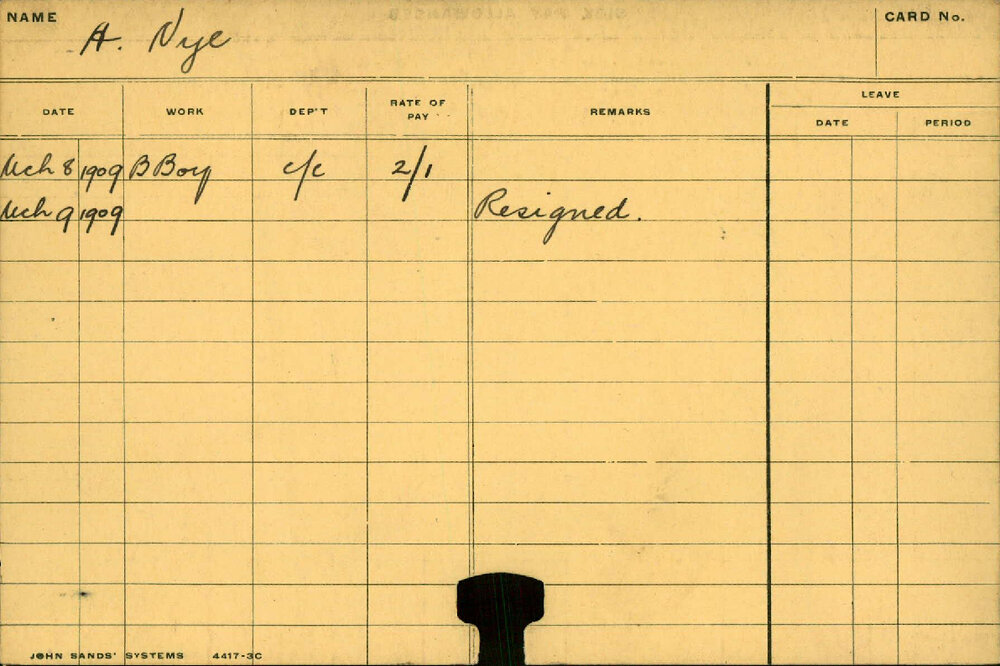 NAME A. Nye CARD No.
LEAVE
DATE WORK DEP'T RATE OF PAY REMARKS DATE PERIOD
Mch 8 1909 B Boy c/c 2/1
Mch 9 1909 Resigned.
JOHN SANDS' SYSTEMS 4417-3C